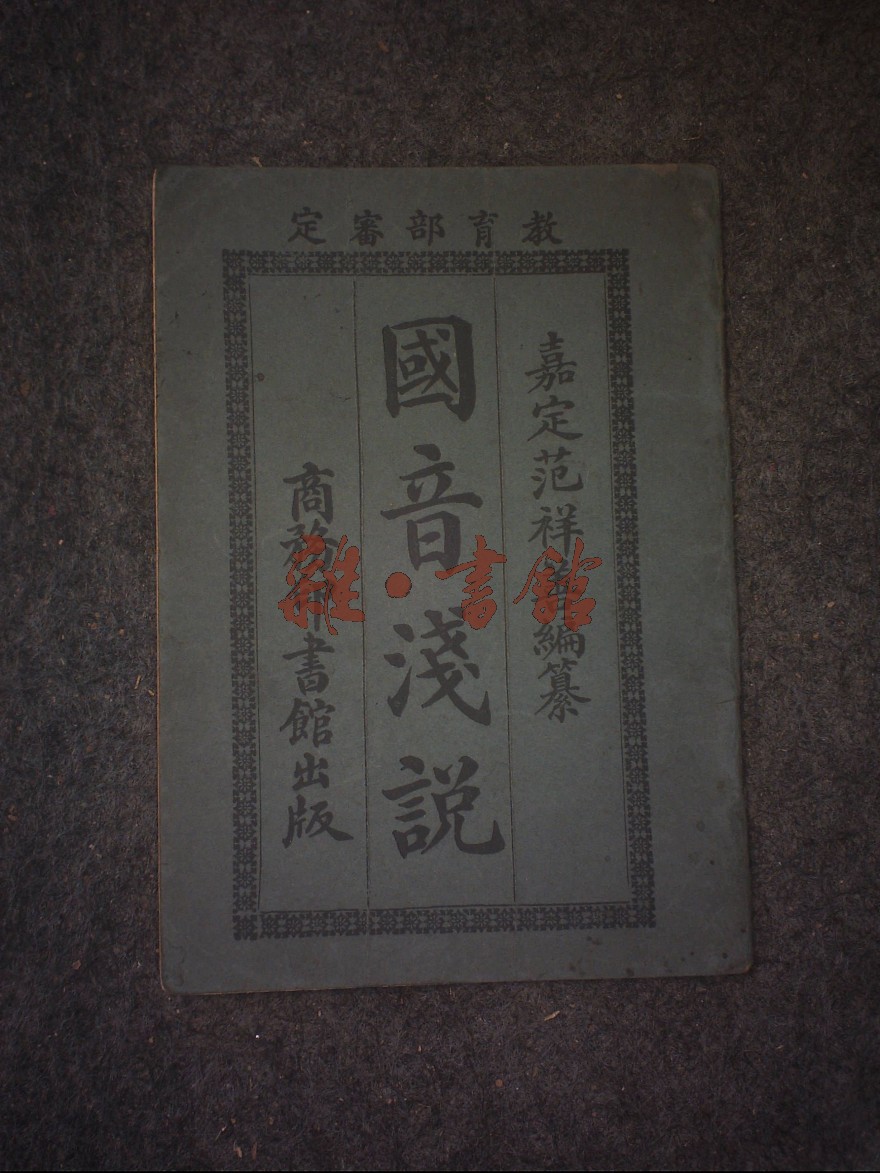 教育部審定
嘉定范祥善編纂
國音淺説
商務印書館出版
雜·書館